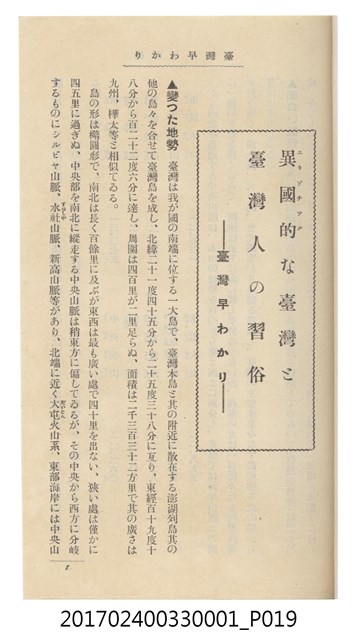 臺灣早わかり
異國的な臺灣と
エキゾチック
臺灣人の習俗
――臺灣早わかり――
▲變つた地勢　臺灣は我が國の南端に位する一大島で、臺灣本島と其の附近に散在する澎湖列島其の
他の島々を合せて臺灣島を成し、北緯二十一度四十五分から二十五度三十八分に亙り、東經百十九度十
八分から百二十二度六分に達し、周圍は四百里が二里足らぬ、面積は二千三百三十二方里で其の廣さは
九州、樺太等と相似てゐる。
島の形は橢圓形で、南北は長く百餘里に及ぶが東西は最も廣い處で四十里を出ない、狹い處は僅かに
四五里に過ぎぬ、中央部を南北に縱走する中央山脈は稍東方に偏してゐるが、その中央から西方に分岐
するものにシルビヤ山脈、水社山脈、新高山脈等があり、北端に近く大屯火山系、東部海岸には中央山
1
201702400330001_P019